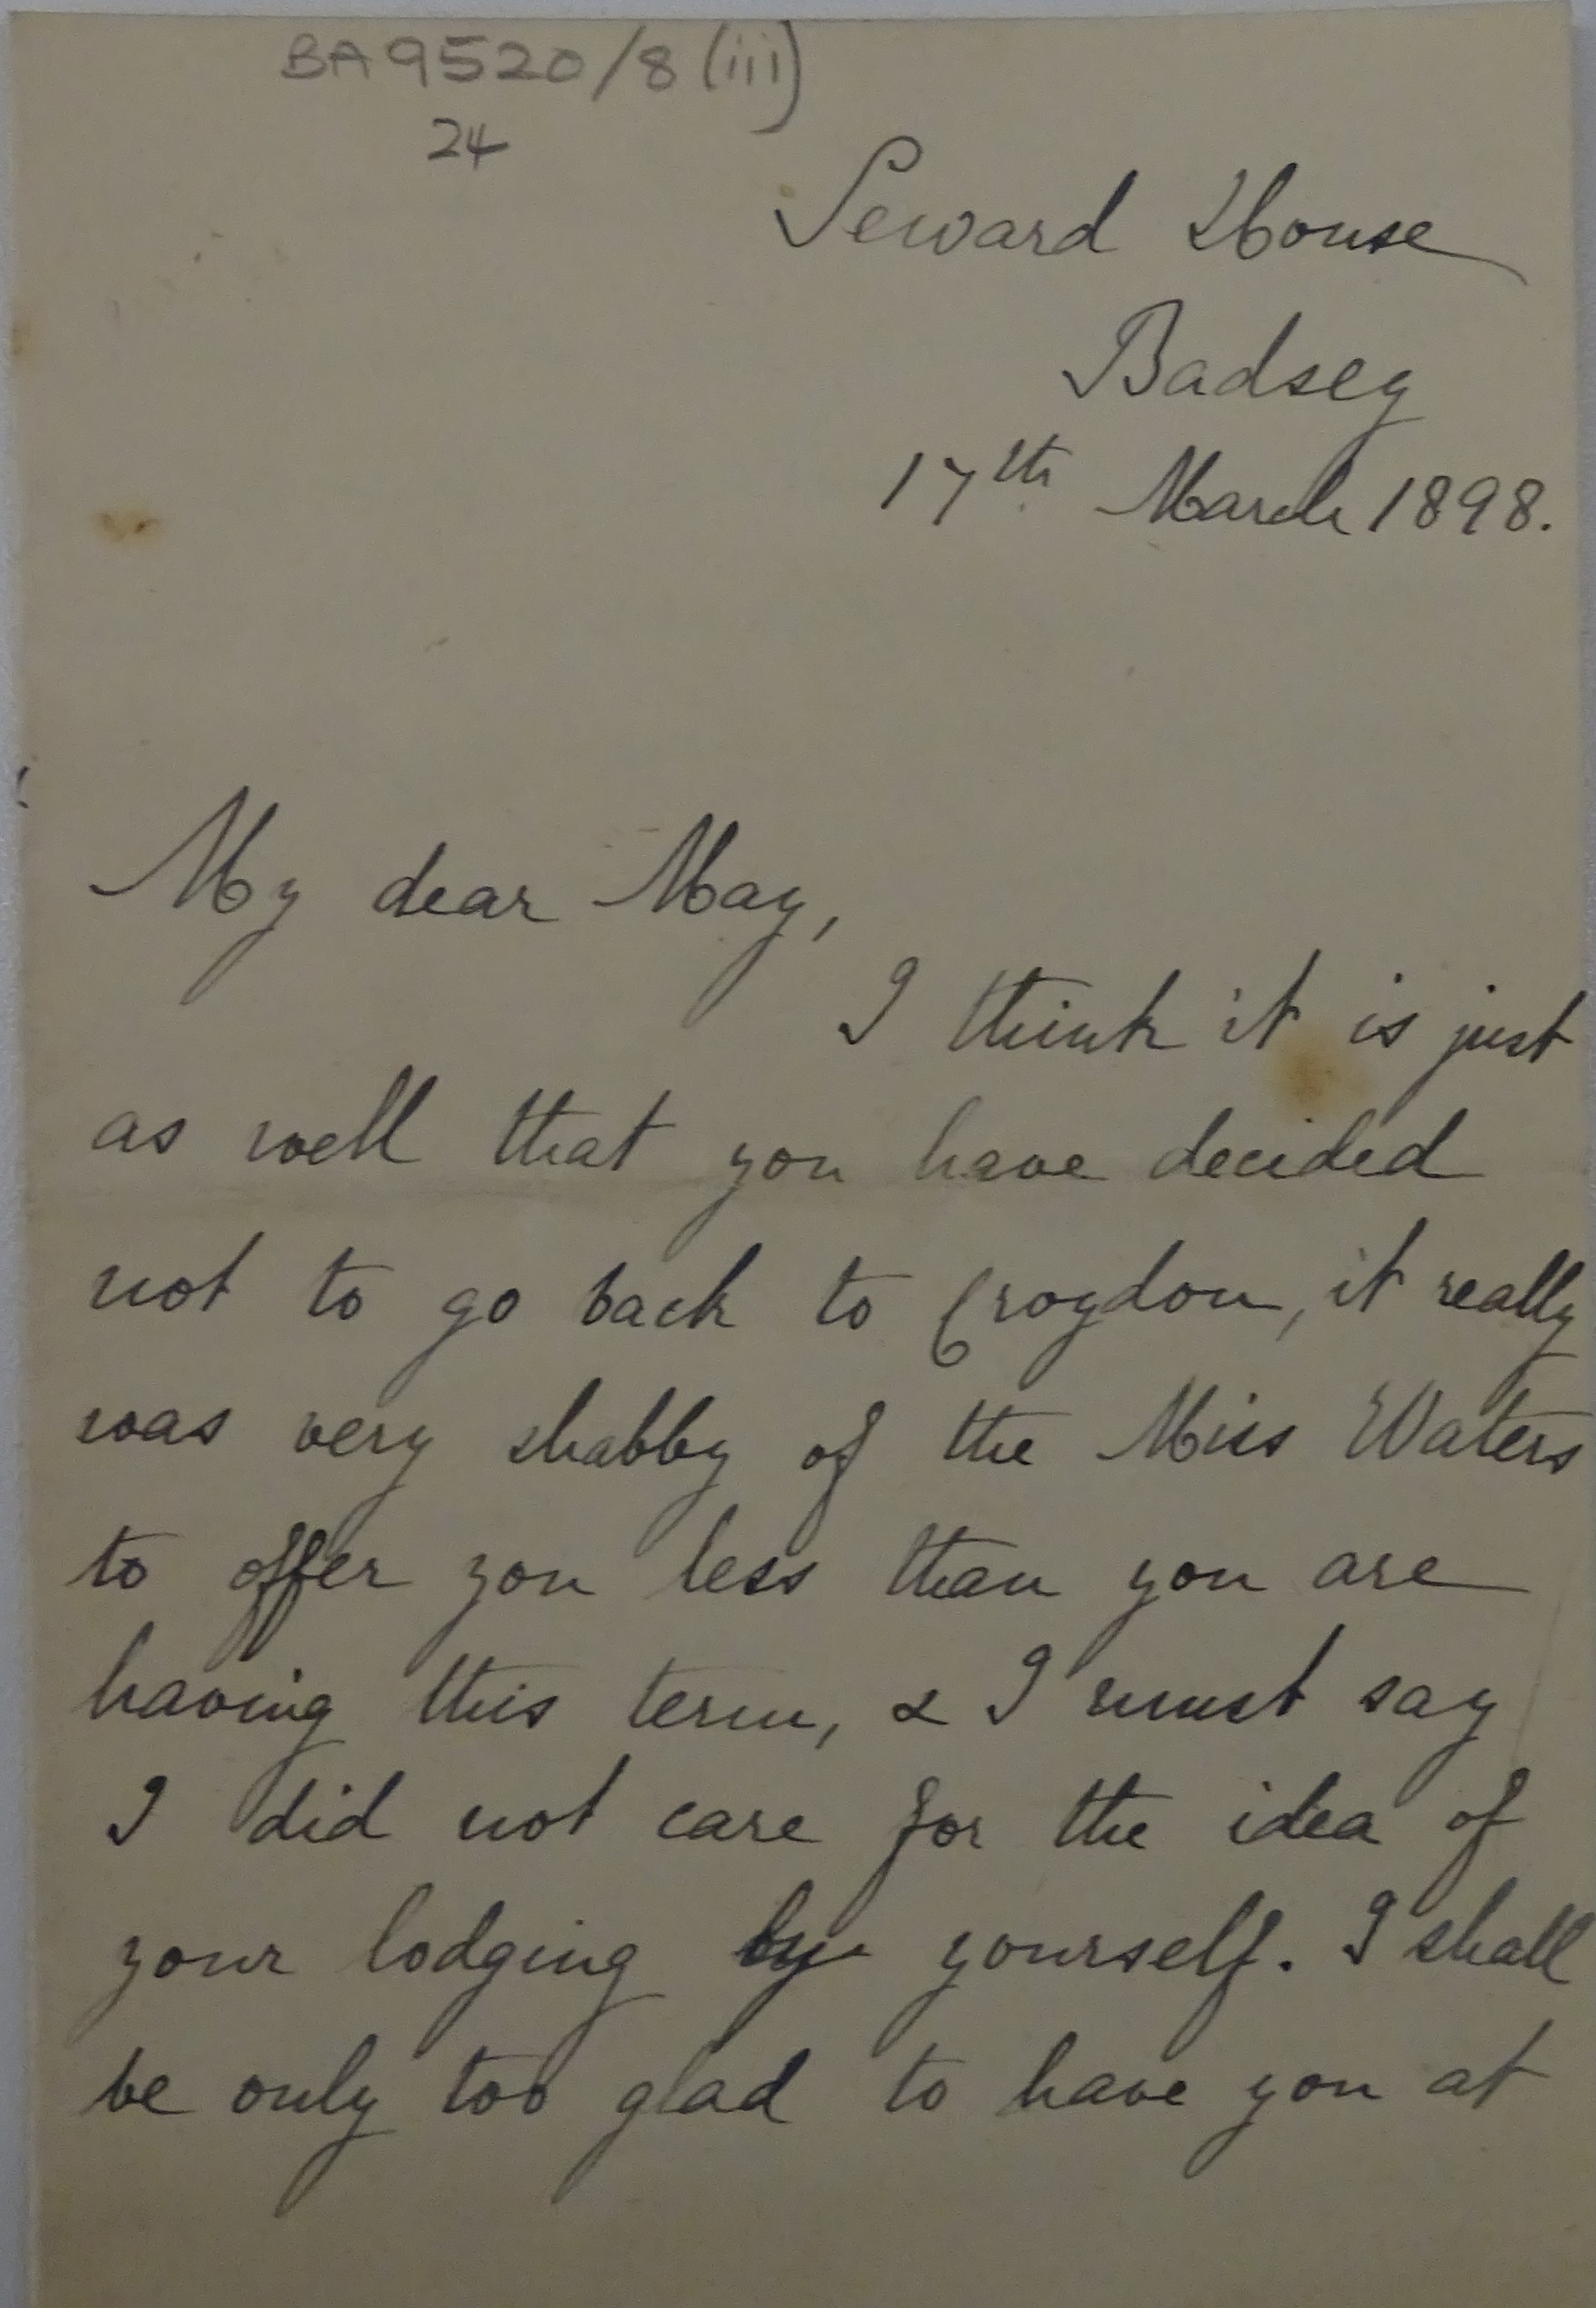 BA 9520/8 (iii)
24
Seward House
Badsey
17th March 1898.
My dear May,
I think it is just
as well that you have decided
not to go back to Croydon, it really
was very shabby of the Miss Waters
to offer you less than you are
having this term, & I must say
I did not care for the idea of
your lodging by yourself. I shall
be only too glad to have you at